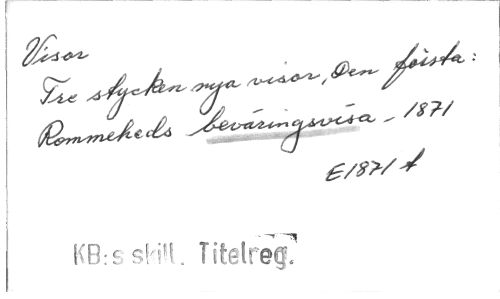 Visor
Tre stycken nya visor, Den första:
Rommeheds beväringsvisa - 1871
E1871 t
KB:s skill. Titelreg.